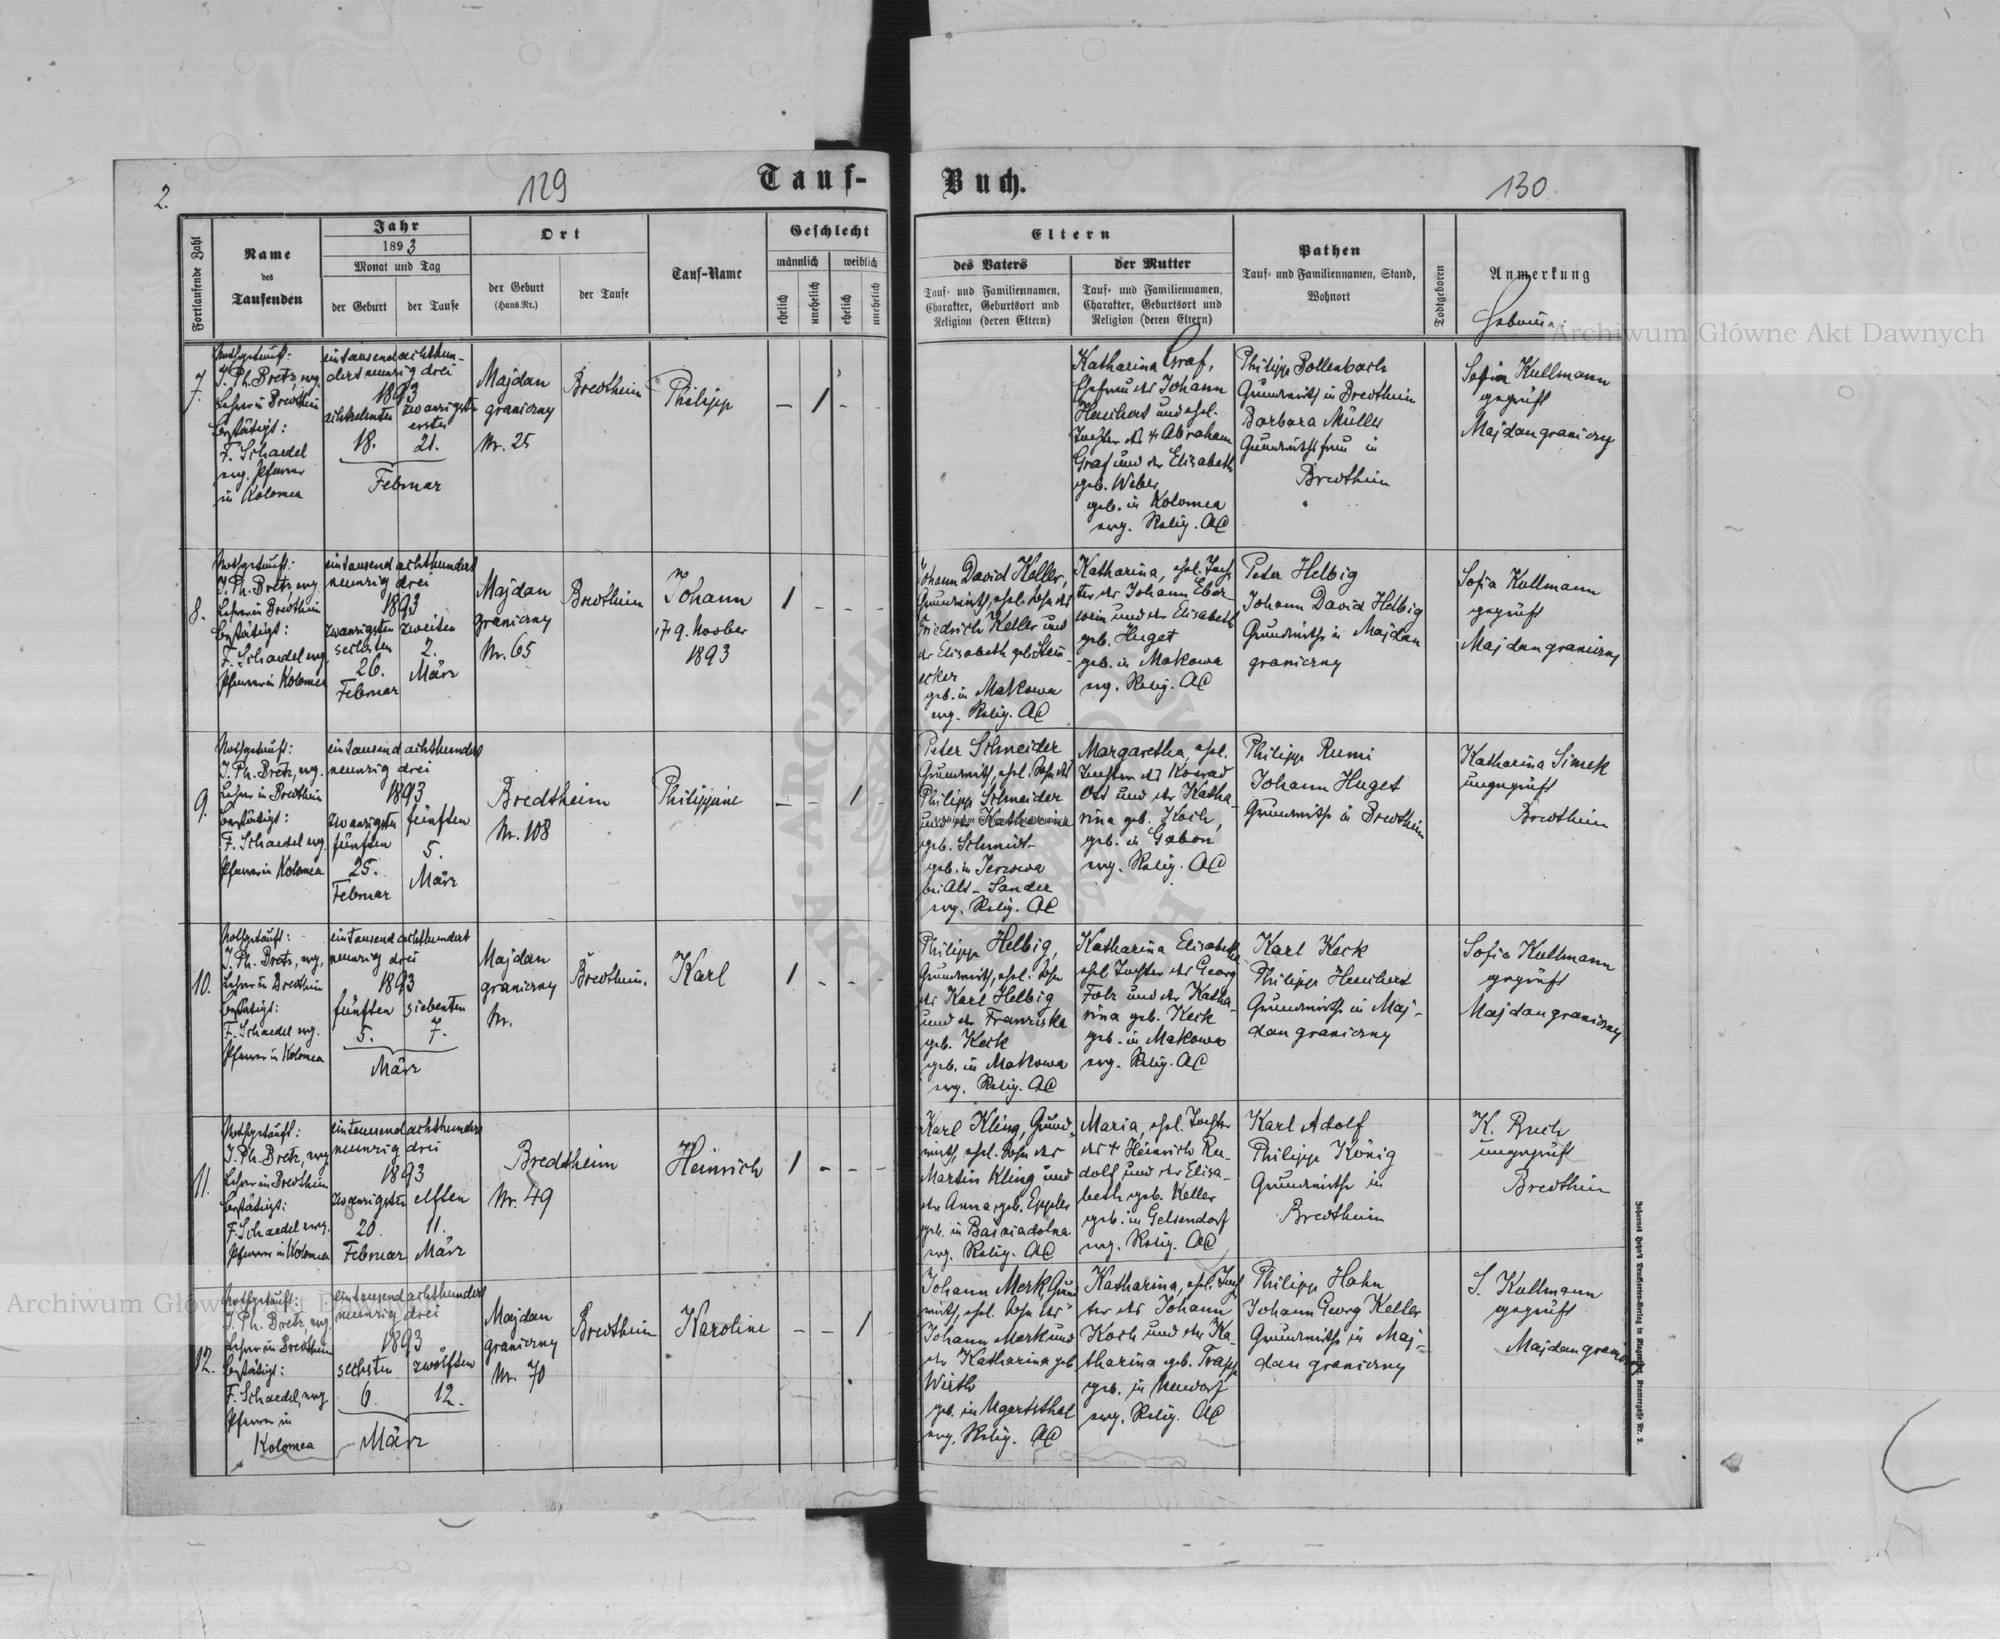 2.
129
Tauf-
Buch.
130
Fortlaufende Zahl
Name
des
Taufenden
Jahr
1893
Monat und Tag
der Geburt
der Taufe
Ort
der Geburt
(Haus.Nr.)
der Taufe
Tauf-Name
Geschlecht
männlich
weiblich
ehelich
unehelich
ehelich
unehelich
Eltern
des Vaters
Tauf- und Familiennamen,
Charakter, Geburtsort und
Religion (deren Eltern)
der Mutter
Tauf- und Familiennamen,
Charakter, Geburtsort und
Religion (deren Eltern)
Pathen
Tauf- und Familiennamen, Stand,
Wohnort
Todtgeboren
Anmerkung
7.
Nothgetauft:
J. Ph. Bretz, evg.
Lehrer in Bredtheim
bestätigt:
F. Schaedel
evg. Pfarrer
in Kolomea
eintausendachthun-
dertneunzig drei
1893
achtzehnten
18.
zwanzigsten
ersten
21.
Februar
Majdan
graniczny
Nr. 25
Bredtheim
Philipp
- 1 - -
Katharina Graf,
Ehefrau des Johann
Heuchert und ehel.
Tochter des † Abraham
Graf und der Elisabeth
geb. Weber
geb. in Kolomea
evg. Relig. AC
Philipp Bollenbach
Grundwirth in Bredtheim
Barbara Müller
Grundwirthsfrau in
Bredtheim
Sofia Kullmann
geprüft
Majdan graniczny
8.
Nothgetauft:
J. Ph. Bretz, evg.
Lehrer in Bredtheim
bestätigt:
F. Schaedel evg.
Pfarrer in Kolomea
eintausend achthundert
neunzig drei
1893
zwanzigsten
sechsten
26.
Februar
zweiten
2.
März
Majdan
graniczny
Nr. 65
Bredtheim
Johann
† 9. Novber
1893
1 - - -
Johann David Keller,
Grundwirth, ehel. Sohn des
Friedrich Keller und
der Elisabeth geb. Stein-
ecker
geb. in Makowa
evg. Relig. AC
Katharina, ehel. Toch-
ter des Johann Eber-
wein und der Elisabeth
geb. Huget
geb. in Makowa
evg. Relig. AC
Peter Helbig
Johann David Helbig
Grundwirthe in Majdan
graniczny
Sofia Kullmann
geprüft
Majdan graniczny
9.
Nothgetauft:
J. Ph. Bretz, evg.
Lehrer in Bredtheim
bestätigt:
F. Schaedel evg.
Pfarrer in Kolomea
eintausend achthundert
neunzig drei
1893
zwanzigsten
fünften
25.
Februar
fünften
5.
März
Bredtheim
Nr. 108
Philippine
- - 1 -
Peter Schneider
Grundwirth, ehel. Sohn des
Philipp Schneider
und der Katharina
geb. Schmidt
geb. in
bei Alt-Sandez
evg. Relig. AC
Margaretha, ehel.
Tochter des Konrad
Ott und der Katha-
rina geb. Koch,
geb. in Gabon
evg. Relig. AC
Philipp Rumi
Johann Huget
Grundwirthe in Bredtheim
Katharina Simek
ungeprüft
Bredtheim
10.
Nothgetauft:
J. Ph. Bretz, evg.
Lehrer in Bredtheim
bestätigt:
F. Schaedel evg.
Pfarrer in Kolomea
eintausend achthundert
neunzig drei
1893
fünften
5.
siebenten
7.
März
Majdan
graniczny
Nr.
Bredtheim.
Karl
1 - - -
Philipp Helbig,
Grundwirth, ehel. Sohn
des Karl Helbig
und der Franziska
geb. Keck
geb. in Makowa
evg. Relig. AC
Katharina Elisabetha
ehel. Tochter des Georg
Folz und der Katha-
rina geb. Keck
geb. in Makowa
evg. Relig. AC
Karl Keck
Philipp Heuchert
Grundwirthe in Maj-
dan graniczny
Sofia Kullmann
geprüft
Majdan graniczny
11.
Nothgetauft:
J. Ph. Bretz, evg.
Lehrer in Bredtheim
bestätigt:
F. Schaedel evg.
Pfarrer in Kolomea
eintausend achthundert
neunzig drei
1893
zwanzigsten
20.
Februar
elften
11.
März
Bredtheim
Nr. 49
Heinrich
1 - - -
Karl Kling, Grund-
wirth, ehel. Sohn des
Martin Kling und
der Anna geb. Eppler
geb. in
evg. Relig. AC
Maria, ehel. Tochter
des † Heinrich Ru-
dolf und der Elisa-
beth geb. Keller
geb. in Gelsendorf
evg. Relig. AC
Karl Adolf
Philipp König
Grundwirthe in
Bredtheim
K. Buch
ungeprüft
Bredtheim
12.
Nothgetauft:
J. Ph. Bretz, evg.
Lehrer in Bredtheim
bestätigt:
F. Schaedel, evg.
Pfarrer in
Kolomea
eintausend achthundert
neunzig drei
1893
sechsten
6.
zwölften
12.
März
Majdan
graniczny
Nr. 70
Bredtheim
Karoline
- - 1 -
Johann Merk, Grund-
wirth, ehel. Sohn des
Johann Merk und
der Katharina geb.
Wirth
geb. in Ugartsthal
evg. Relig. AC
Katharina, ehel. Toch-
ter des Johann
Koch und der Ka-
tharina geb. Trapp
geb. in Neudorf
evg. Relig. AC
Philipp Hahn
Johann Georg Keller
Grundwirthe in Maj-
dan graniczny
S. Kullmann
geprüft
Majdan graniczny
Archiwum Główne Akt Dawnych
Archiwum Główne Akt Dawnych